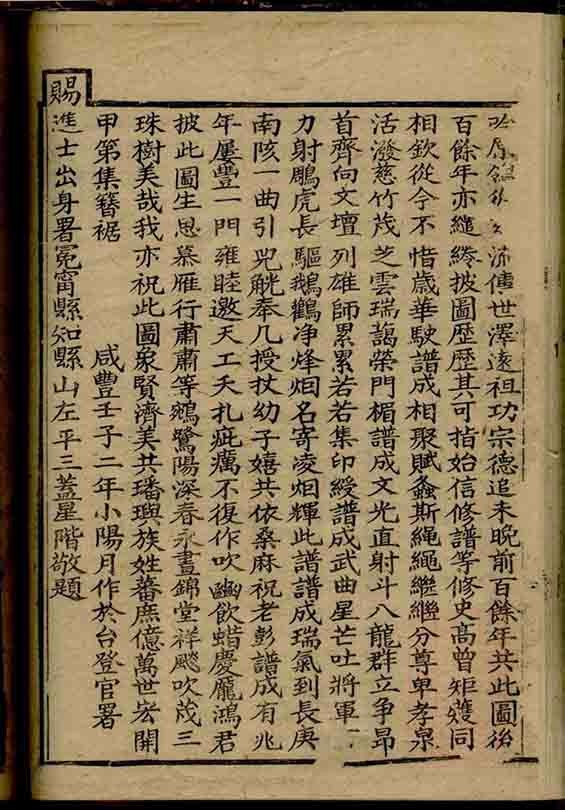 流傳世澤遠祖功宗德追未晚前百餘年共此圖後
百餘年亦繾綣披圖歷歷其可指始信修譜等修史高曾矩矱同
相欽從今不惜歲華駛譜成相聚賦螽斯繩繩繼繼分尊卑孝泉
活潑慈竹茂芝雲瑞藹榮門楣譜成文光直射斗八龍群立爭昂
首齊向文壇列雄師累累若若集印綬譜成武曲星芒吐將軍
力射鵰虎長驅鵝鸛净烽烟名寄凌烟輝此譜譜成瑞氣到長庚
南陔一曲引兕觥奉几授杖幼子嬉共依桑麻祝老彭譜成有兆
年屢豐一門雍睦邀天工夭札疵癘不復作吹豳飲蜡慶龐鴻君
披此圖生恩慕雁行肅肅等鵷鷺陽深春永晝錦堂祥飈吹茂三
珠樹美哉我亦祝此圖象賢濟美共璠璵族姓蕃庶億萬世宏開
甲第集簪裾 咸豐壬子二年小陽月作於台登官署
賜進士出身署冕甯縣知縣山左平三蓋星階敬題